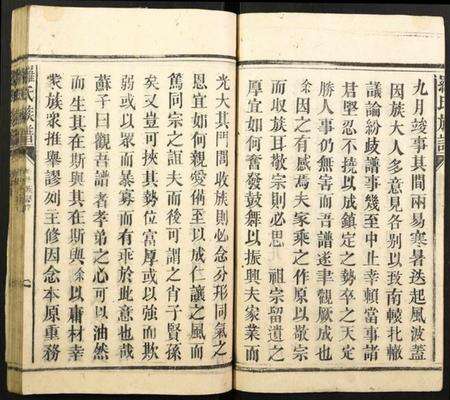 九月竣事其間兩易寒暑迭起風波蓋
因族大人多意見各别以致南轅北轍
議論紛歧譜事幾至中止幸頼當事諸
君堅忍不撓以成鎮定之勢卒之天定
勝人事仍無害而吾譜遂聿觀厥成也
余因之有感焉夫家乘之作原以敬宗
而收族耳敬宗則必思祖宗留遺之
厚宜如何奮發鼓舞以振興夫家業而
光大其門閭收族則必念分形同氣之
恩宜如何親愛偹至以成仁讓之風而
篤同宗之誼夫而後可謂之肖子賢孫
矣又豈可挾其勢位富厚或以強而欺
弱或以眾而暴寡而有乖於此意也哉
蘇子曰觀吾譜者孝弟之心可以油然
而生其在斯與其在斯與余以庸材幸
蒙族眾推舉謬列主修因念本原重務
羅氏族譜
羅氏族譜